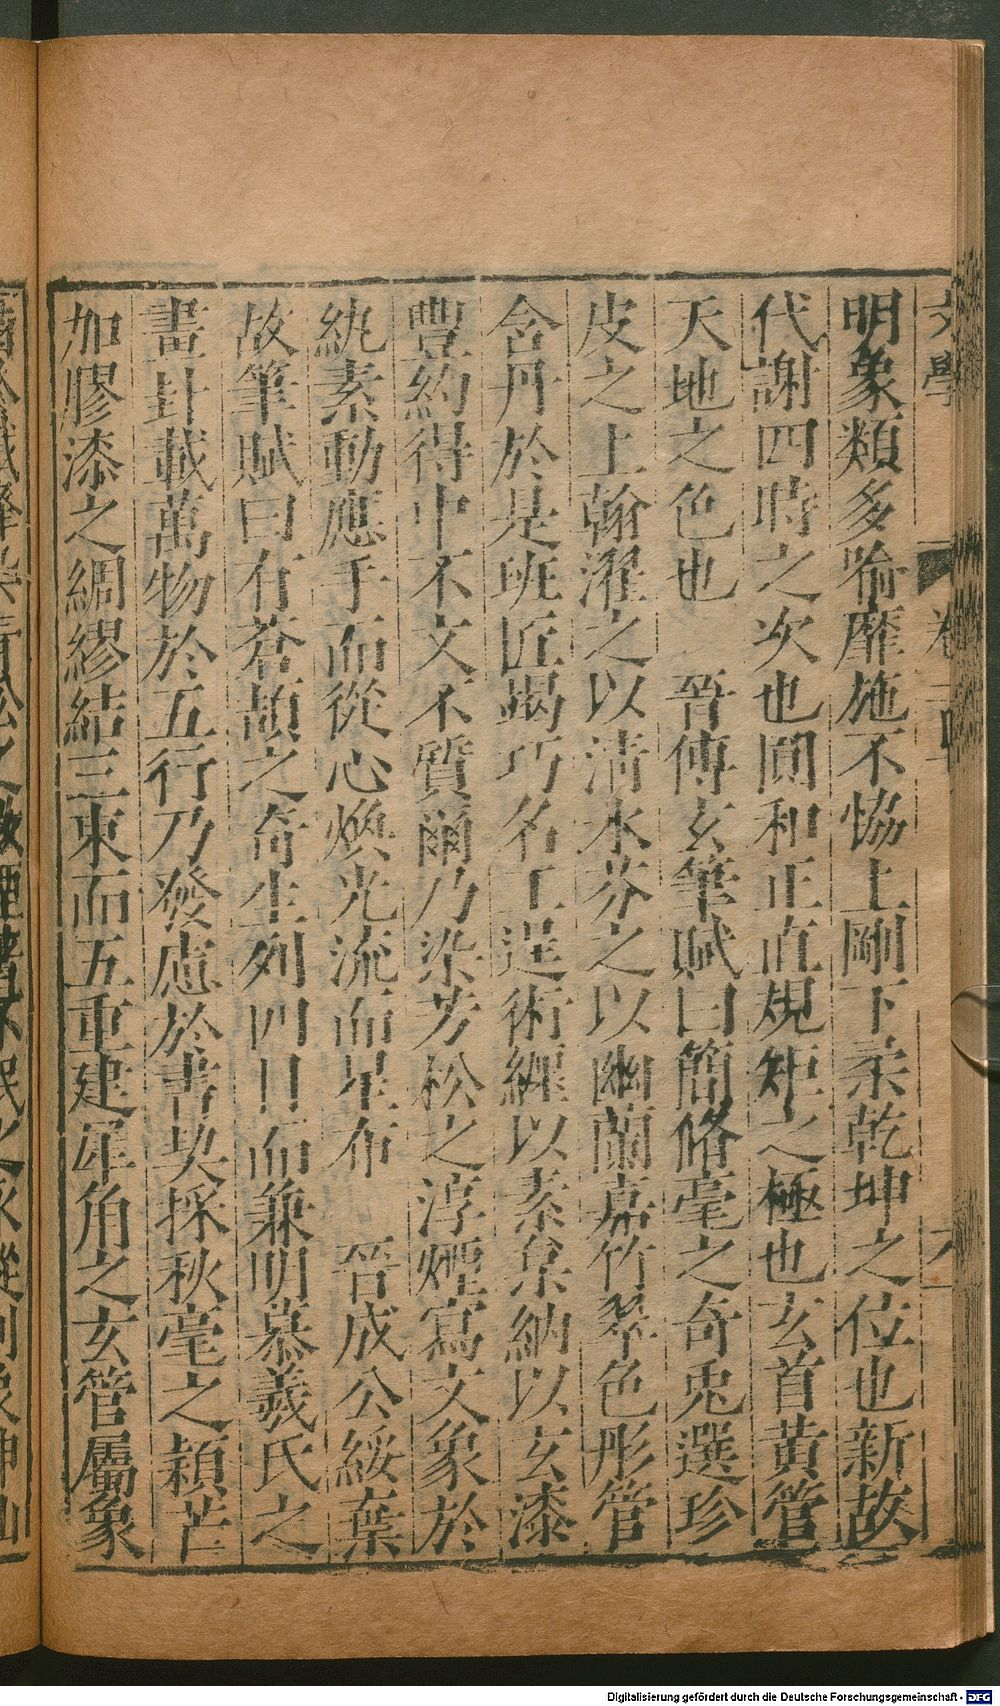 文學
卷
明象類多喻靡施不協上剛下柔乾坤之位也新故
代謝四時之次也圓和正直規矩之極也玄首黃管
天地之色也　晉傅玄筆賦曰簡脩毫之奇兎選珍
皮之上翰濯之以清水芬之以幽蘭嘉竹翠色彤管
含丹於是班匠竭巧名工逞術纏以素枲納以玄漆
豐約得中不文不質爾乃染芳松之淳煙寫文象於
紈素動應手而從心煥光流而星布　晉成公綏棄
故筆賦曰有蒼頡之奇生列四目而兼明慕羲氏之
畫卦載萬物於五行乃發慮於書契採秋毫之穎芒
加膠漆之綢繆結三束而五重建犀角之玄管屬象
Digitalisierung gefördert durch die Deutsche Forschungsgemeinschaft - DFG